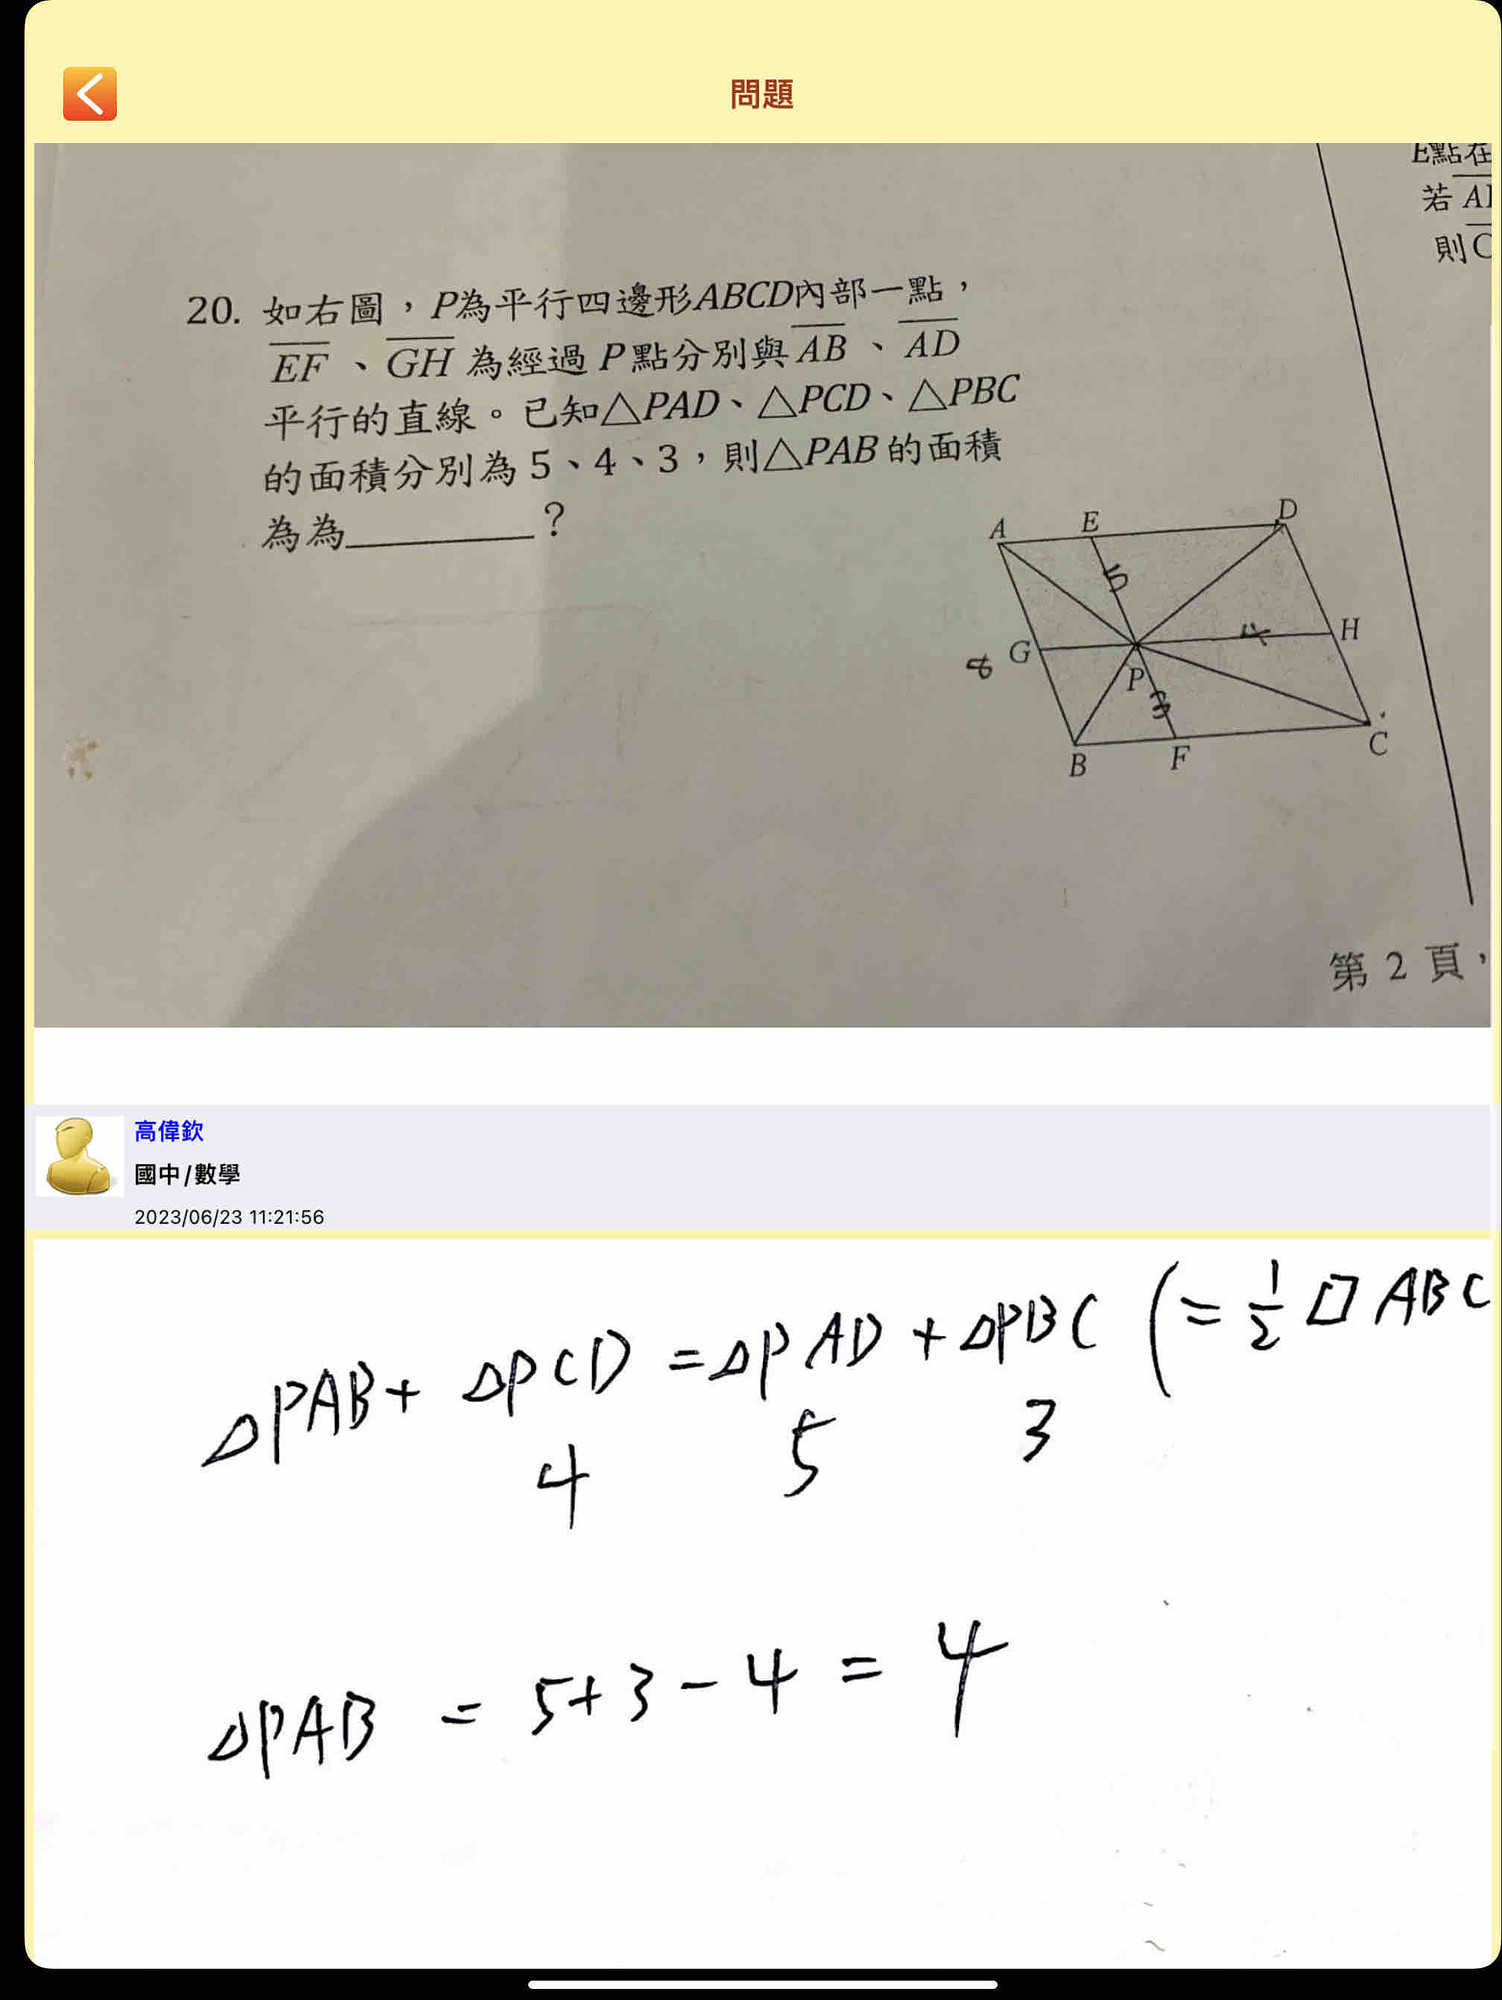 問題
E點在
若 A
則 C
20. 如右圖，P為平行四邊形ABCD內部一點，
EF、GH 為經過 P點分別與 AB、AD
平行的直線。已知△PAD、△PCD、△PBC
的面積分別為 5、4、3，則△PAB 的面積
為為________？
A E D
5
G 4 H
8
P 3
B F C
第 2 頁，
高偉欽
國中/數學
2023/06/23 11:21:56
△PAB+ △PCD =△PAD +△PBC (= 1/2 ▱ ABC
4 5 3
△PAB = 5+3-4 = 4